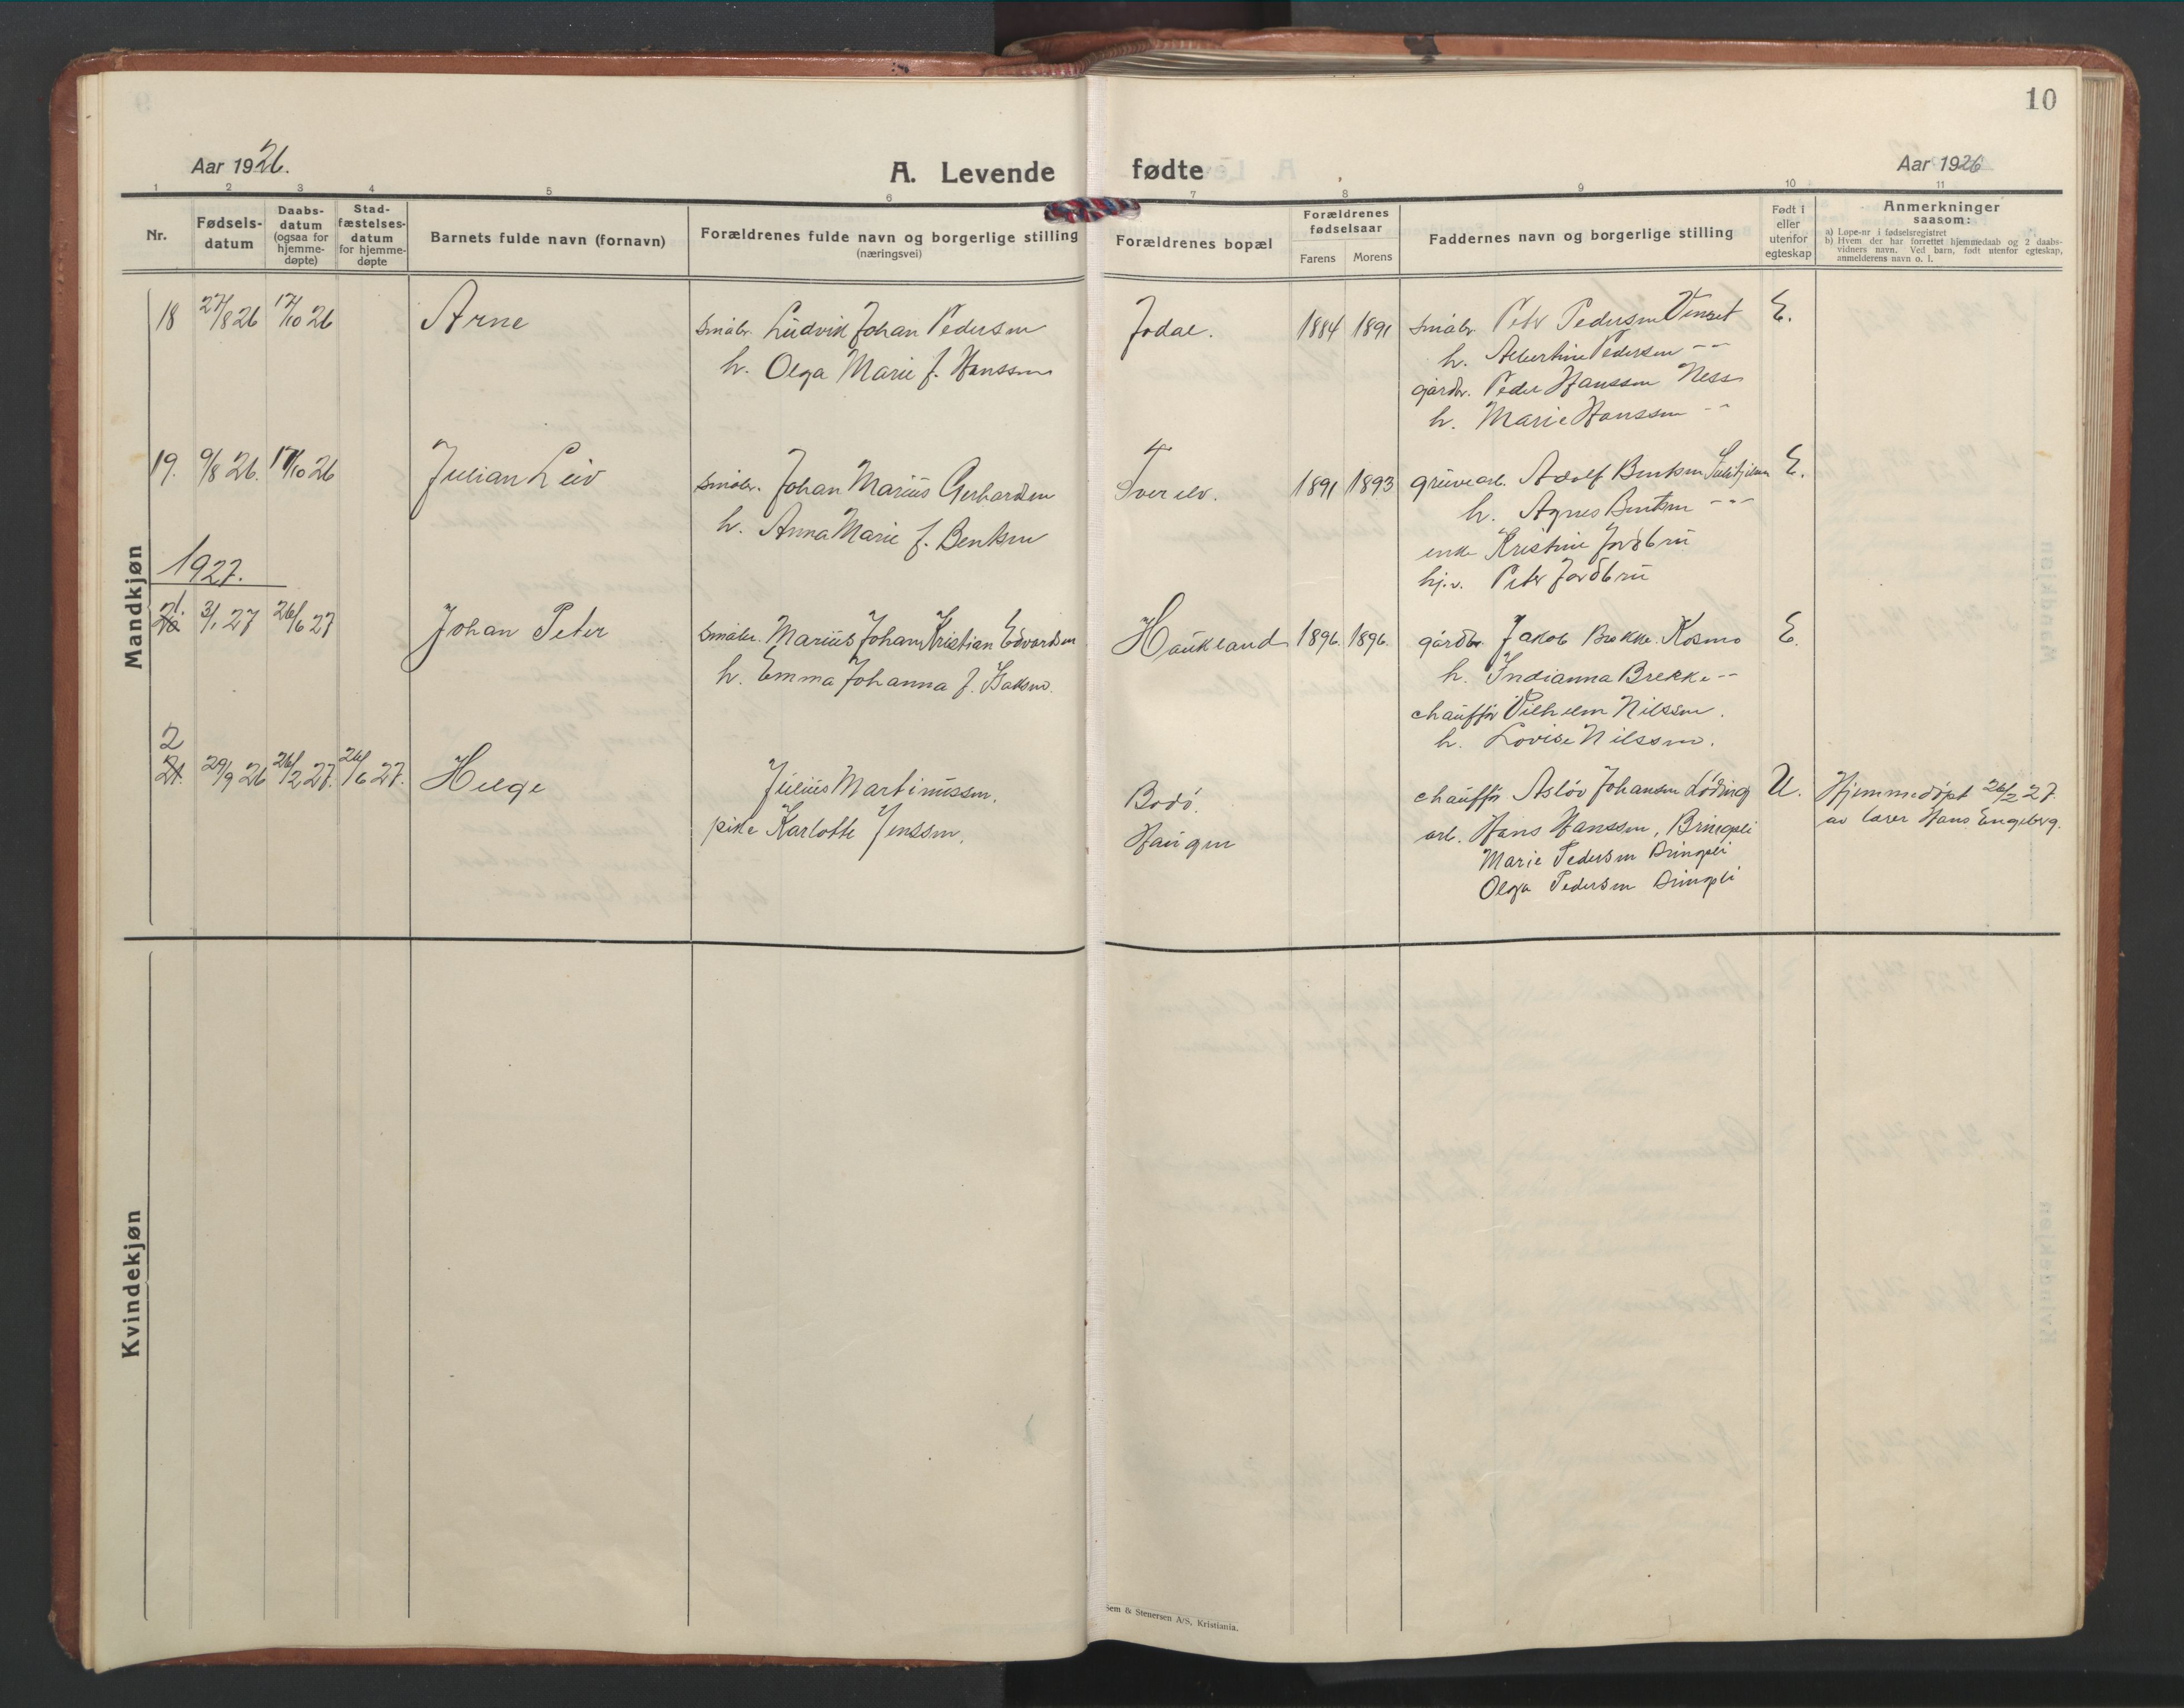 10
Aar 1926.
A. Levende fødte
Aar 1926
1 2 3 4 5 6 7 8 9 10 11
Nr.
Fødsels-
datum
Daabs-
datum
(ogsaa for
hjemme-
døpte)
Stad-
fæstelses-
datum
for hjemme-
døpte
Barnets fulde navn (fornavn)
Forældrenes fulde navn og borgerlige stilling
(næringsvei)
Forældrenes bopæl
Forældrenes
fødselsaar
Farens Morens
Faddernes navn og borgerlige stilling
Født i
eller
utenfor
egteskap
Anmerkninger
saasom:
a) Løpe-nr i fødselsregistret
b) Hvem der har forrettet hjemmedaab og 2 daabs-
vidners navn. Ved barn, født utenfor egteskap,
anmelderens navn o. l.
Mandkjøn
18 27/8 26 17/10 26 Arne småbr. Ludvik Johan Pedersen Jodal. 1884 1891 småbr. Peter Pedersen Venset E.
h. Olga Marie f. Hanssen h. Albertine Pedersen - -
gårdbr. Peder Hanssen Ness
h. Marie Hanssen - -
19. 9/8 26. 17/10 26 Julian Leiv småbr. Johan Marius Gerhardsen Tverelv. 1891 1893 gruvearb. Adolf Bentsen Sulitjelma E.
h. Anna Marie f. Bentsen h. Agnes Bentsen - - -
enke Kristine Jordbru
hj.v. Peter Jordbru
1927.
21. 3/1 27 26/6 27 Johan Peter småbr. Marius Johan Kristian Edvardsen Haukland 1896. 1896. gårdbr. Jakob Brekke Kosmo E.
h. Emma Johanna f. Isaksen. h. Indianna Brekke - -
chauffør Vilhelm Nilssen.
h. Lovise Nilssen.
2
21. 29/9 26 26/2 27. 26/6 27. Helge Julius Martinussen. Bodø. chauffør Asløv Johansen Løding U. Hjemmedøpt 26/2 27.
pike Karlotte Jenssen. Haugen arb. Hans Hanssen, Bringsli av lærer Hans Engeberg.
Marie Pedersen Bringsli
Olga Pedersen Bringsli
Kvindekjøn
Sem & Stenersen A/S, Kristiania.